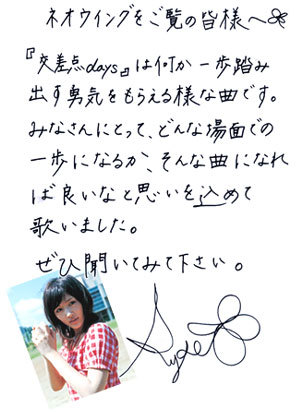 ネオウイングをご覧の皆様へ
『交差点days』は何か一歩踏み
出す勇気をもらえる様な曲です。
みなさんにとって、どんな場面での
一歩になるか、そんな曲になれ
ば良いなと思いを込めて
歌いました。
ぜひ聞いてみて下さい。